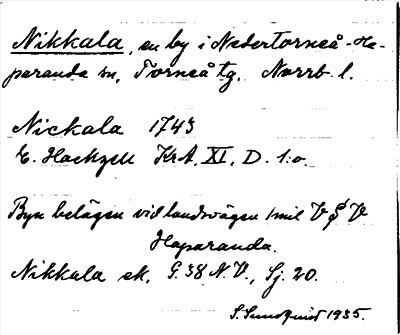 Nikkala, en by i Nedertorneå-Ha-
paranda sn, Torneå tg. Norrb. l.
Nickala 1743
E. Hackzell KrA. XI, D. 1:o.
Byn belägen vid landsvägen 1 mil V g V
Haparanda.
Nikkala sk. G. 38 N.V., Sj. 20.
S. Sundquist 1935.